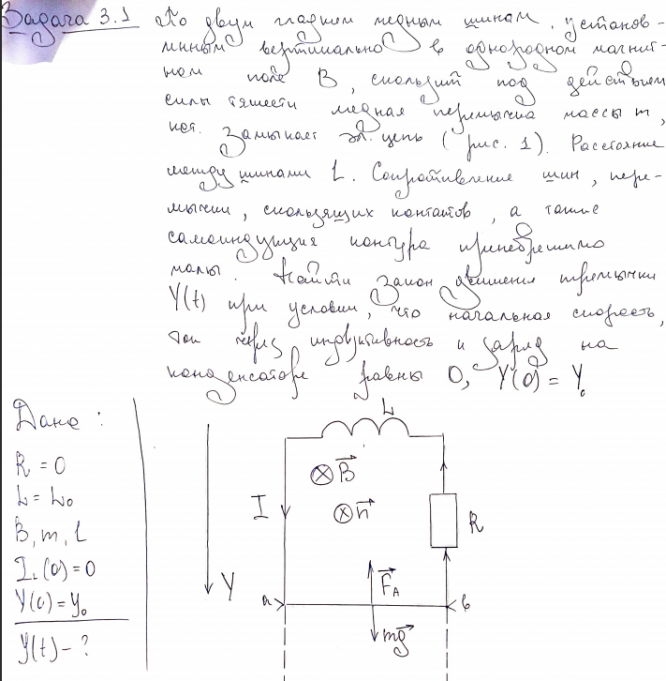 Задача 3.1 По двум гладким медным шинам, установ-
ленным вертикально в однородном магнит-
ном поле B, скользит под действием
силы тяжести медная перемычка массы m,
кот. замыкает эл. цепь (рис. 1). Расстояние
между шинами l. Сопротивление шин, пере-
мычки, скользящих контактов, а также
самоиндукция контура пренебрежимо
малы. Найти закон движения перемычки
Y(t) при условии, что начальная скорость,
ток через индуктивность и заряд на
конденсаторе равны 0, Y(0) = Y₀
Дано:
R = 0
L = L₀
B, m, l
I_L(0) = 0
Y(0) = Y₀
Y(t) - ?
L
⊗ B⃗
⊗ n⃗
I
R
Y
a
F⃗_A
b
mg⃗